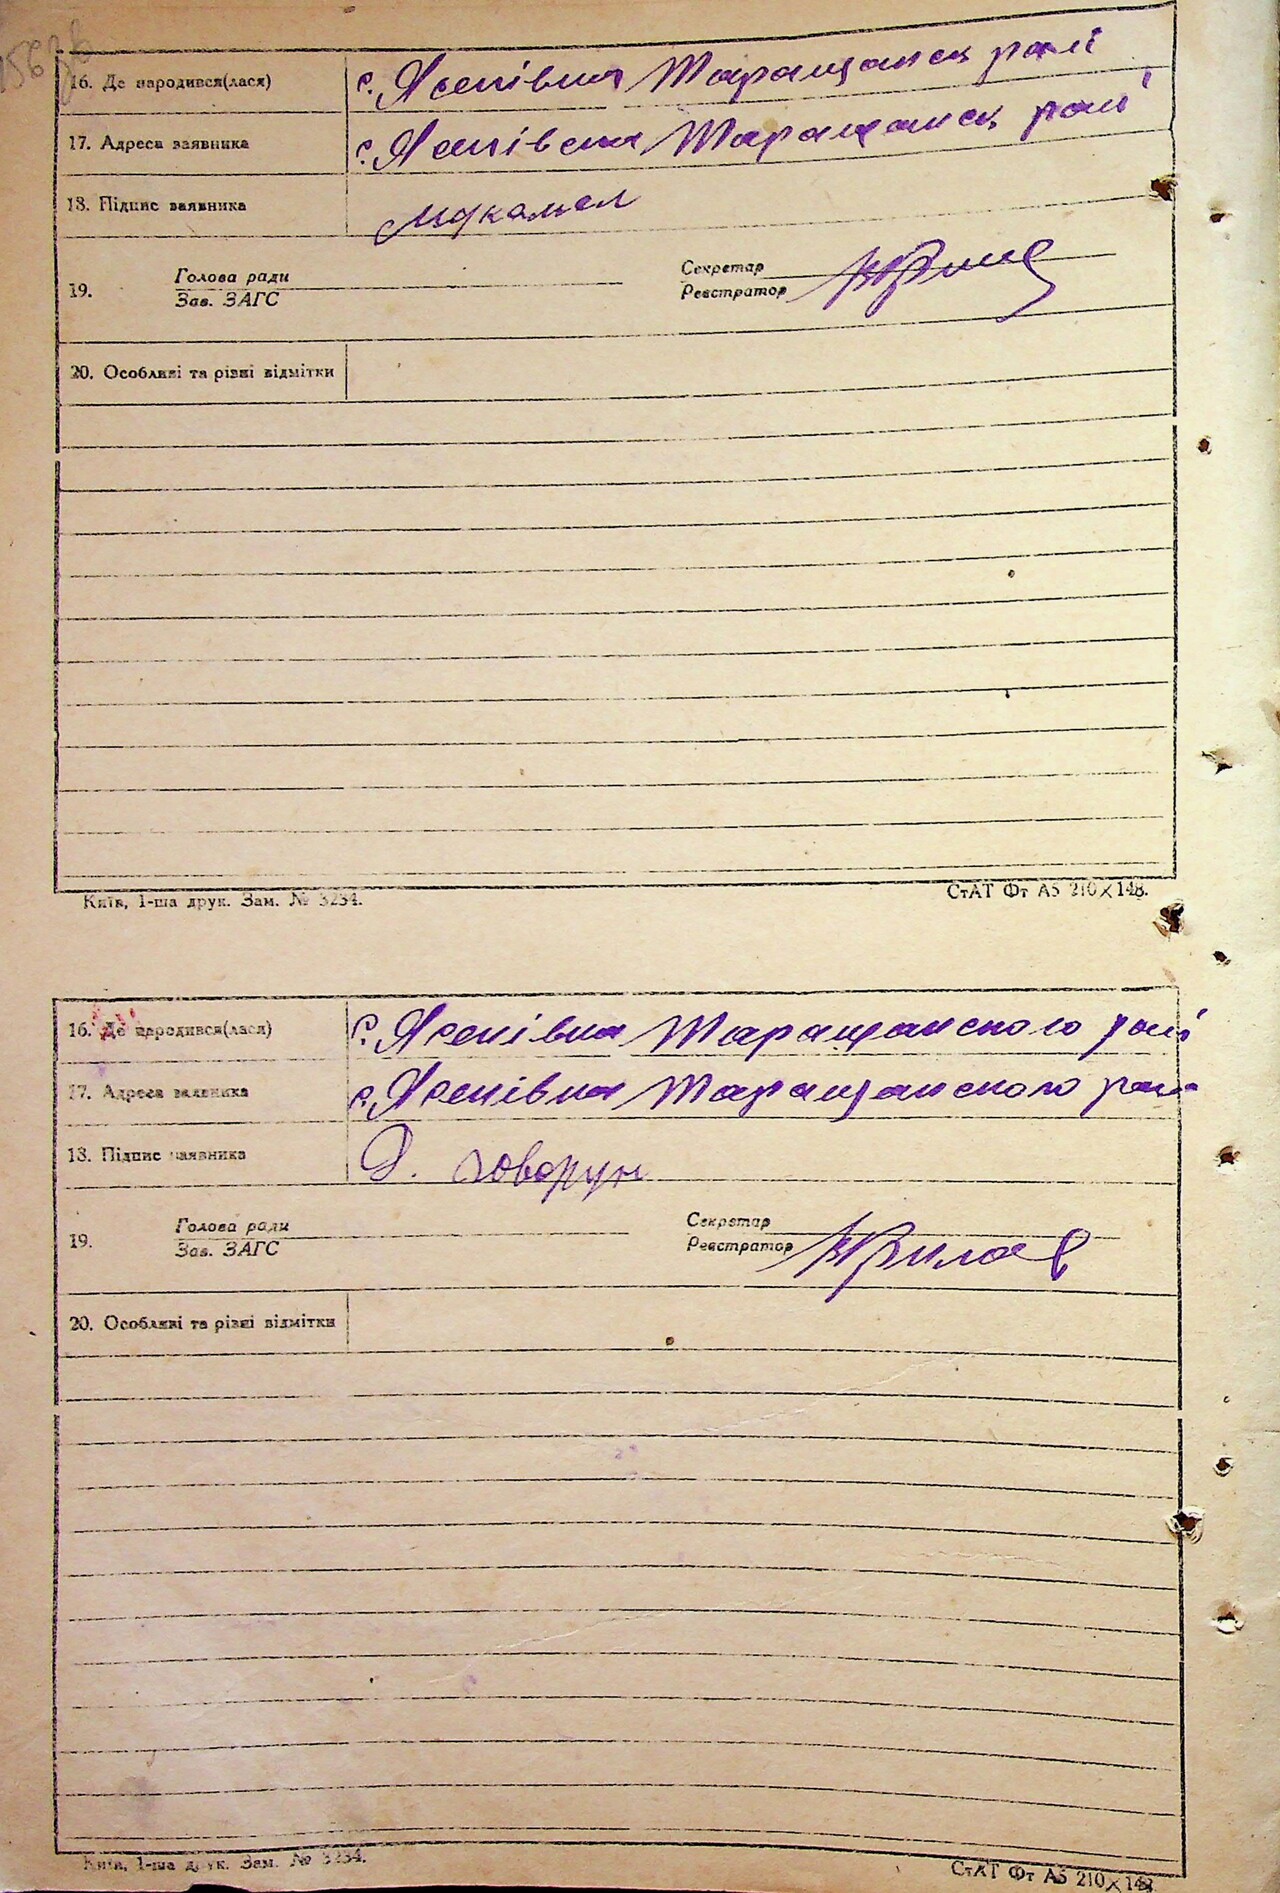 16. Де народився(лася) с. Ясенівка Таращанск раий
17. Адреса заявника с. Ясенівка Таращанск раий
18. Підпис заявника
19. Голова ради Секретар
Зав. ЗАГС Реєстратор
20. Особливі та різні відмітки
Київ, 1-ша друк. Зам. № 3234. СтАТ Фт А5 210×148.
16. Де народився(лася) с. Ясенівка Таращанского
17. Адреса заявника с. Ясенівка Таращанского
18. Підпис заявника Д. Говорун
19. Голова ради Секретар
Зав. ЗАГС Реєстратор
20. Особливі та різні відмітки
Київ, 1-ша друк. Зам. № 3234. СтАТ Фт А5 210×148.